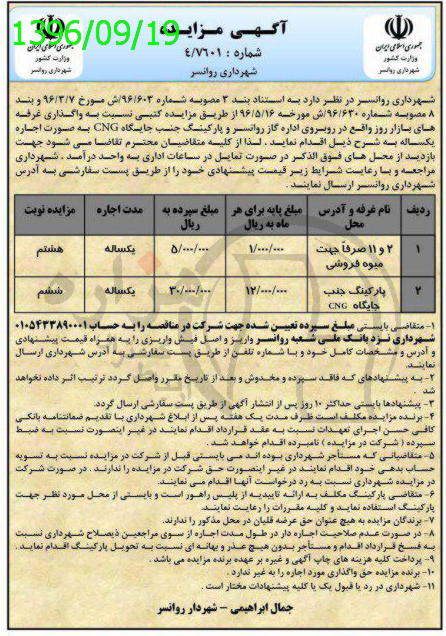 1396/09/19
آگهی مزایده
شماره : ۴/۷۶۰۱
شهرداری روانسر
جمهوری اسلامی ایران
وزارت کشور
شهرداری روانسر
جمهوری اسلامی ایران
وزارت کشور
شهرداری روانسر
شهرداری روانسر در نظر دارد به استناد بند ۳ مصوبه شماره ۹۶/۶۰۳/ش مورخ ۹۶/۳/۷ و بند
۸ مصوبه شماره ۹۶/۶۳۰/ش مورخه ۹۶/۵/۱۶ از طریق مزایده کتبی نسبت به واگذاری غرفه
های بازار روز واقع در روبروی اداره گاز روانسر و پارکینگ جنب جایگاه CNG به صورت اجاره
یکساله به شرح ذیل اقدام نماید . لذا از کلیه متقاضیان محترم تقاضا می شود جهت
بازدید از محل های فوق الذکر در صورت تمایل در ساعات اداری به واحد درآمد . شهرداری
مراجعه و با رعایت شرایط زیر قیمت پیشنهادی خود را از طریق پست سفارشی به آدرس
شهرداری روانسر ارسال نمایند .
ردیف نام غرفه و آدرس محل مبلغ پایه برای هر ماه به ریال مبلغ سپرده به ریال مدت اجاره مزایده نوبت
۱ ۲ و ۱۱ صرفاً جهت میوه فروشی ۱/۰۰۰/۰۰۰ ۵/۰۰۰/۰۰۰ یکساله هشتم
۲ پارکینگ جنب جایگاه CNG ۱۲/۰۰۰/۰۰۰ ۳۰/۰۰۰/۰۰۰ یکساله ششم
۱- متقاضی بایستی مبلغ سپرده تعیین شده جهت شرکت در مناقصه را به حساب ۰۱۰۵۴۳۳۸۹۰۰۰۱
شهرداری نزد بانک ملی شعبه روانسر واریز و اصل فیش واریزی را به همراه قیمت پیشنهادی
و آدرس و مشخصات کامل خود و با شماره تلفن از طریق پست سفارشی به آدرس شهرداری ارسال
نمایند.
۲- به پیشنهادهای که فاقد سپرده و مخدوش و بعد از تاریخ مقرر واصل گردد ترتیب اثر داده نخواهد
شد .
۳- پیشنهادها بایستی حداکثر ۱۰ روز پس از انتشار آگهی از طریق پست سفارشی ارسال گردد.
۴- برنده مزایده مکلف است ظرف مدت یک هفته پس از ابلاغ شهرداری با تقدیم ضمانتنامه بانکی
کافی حسن اجرای تعهدات نسبت به عقد قرارداد اقدام نمایند در غیر اینصورت نسبت به ضبط
سپرده ( شرکت در مزایده ) نامبرده اقدام خواهد شد .
۵- متقاضیانی که مستأجر شهرداری بوده اند می بایستی قبل از شرکت در مزایده نسبت به تسویه
حساب بدهی خود اقدام نمایند در غیر اینصورت حق شرکت در مزایده را ندارند . در صورت شرکت
در مزایده شهرداری نسبت به رد درخواست آنها اقدام می نمایند.
۶- متقاضی پارکینگ مکلف به ارائه تاییدیه از پلیس راهور است و بایستی از محل مورد نظر جهت
پارکینگ استفاده نماید و کلیه مقررات را رعایت نمایند.
۷- برندگان مزایده به هیچ عنوان حق عرضه قلیان در محل مذکور را ندارند.
۸- در صورت عدم صلاحیت اجاره دار در طول مدت اجاره از سوی مراجعین ذیصلاح شهرداری نسبت
به فسخ قرارداد اقدام و مستأجر بدون هیچ عذر و بهانه ای نسبت به تحویل پارکینگ اقدام نماید .
۹- پرداخت کلیه هزینه های چاپ آگهی و غیره بر عهده برنده مزایده می باشد .
۱۰- برنده مزایده حق واگذاری مورد اجاره را به غیر ندارد .
۱۱- شهرداری در رد یا قبول یک یا کلیه پیشنهادات مختار است .
جمال ابراهیمی - شهردار روانسر